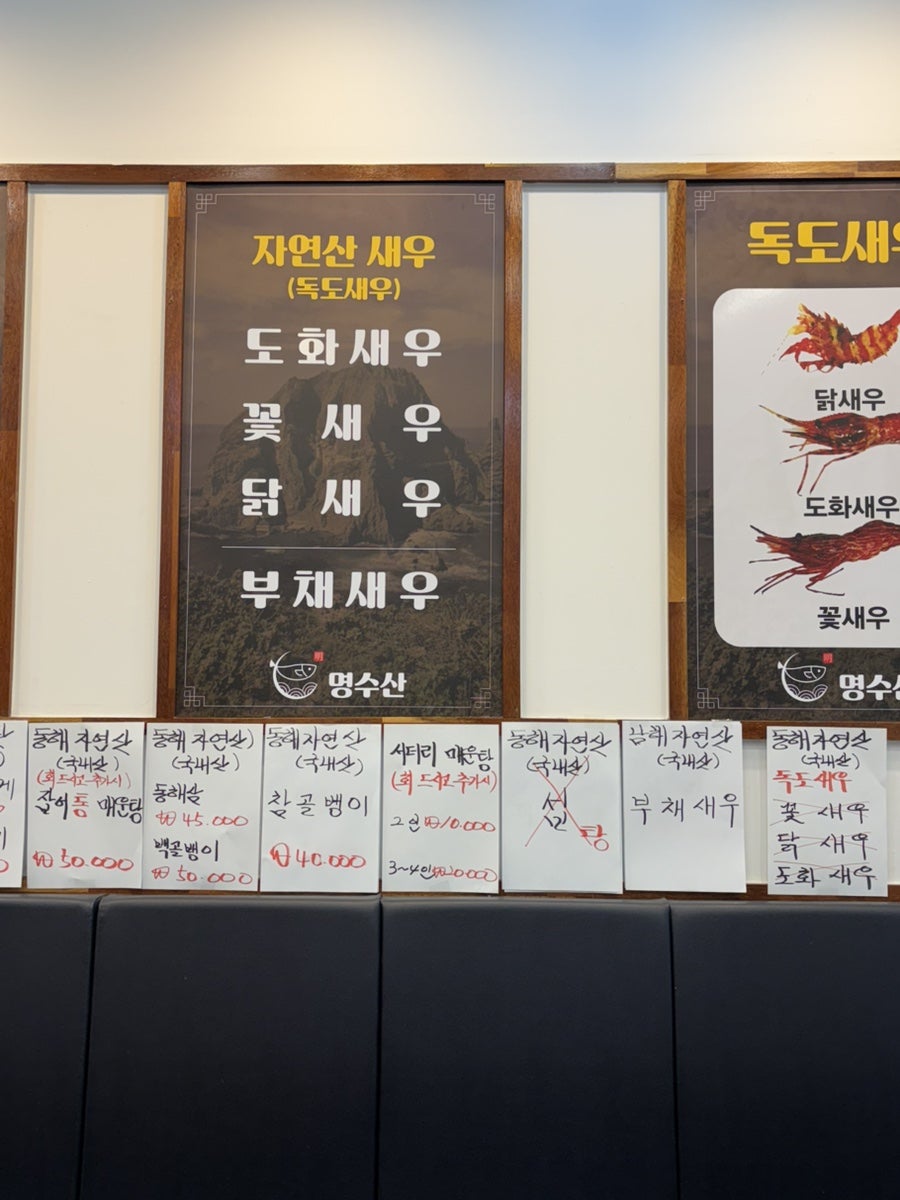 자연산 새우
(독도새우)
도화새우
꽃새우
닭새우
부채새우
명수산
독도새우
닭새우
도화새우
꽃새우
명수산
동해 자연산
(국내산)
(회 드셨을 추가시)
잡어통 매운탕
₩30.000
동해 자연산
(국내산)
동해삼
₩45.000
백골뱅이
₩50.000
동해 자연산
(국내산)
참골뱅이
₩40.000
서더리 매운탕
2인 ₩10.000
3~4인 ₩20.000
동해 자연산
(국내산)
탕
남해 자연산
(국내산)
부채새우
동해 자연산
(국내산)
독도새우
꽃 새우
닭 새우
도화 새우